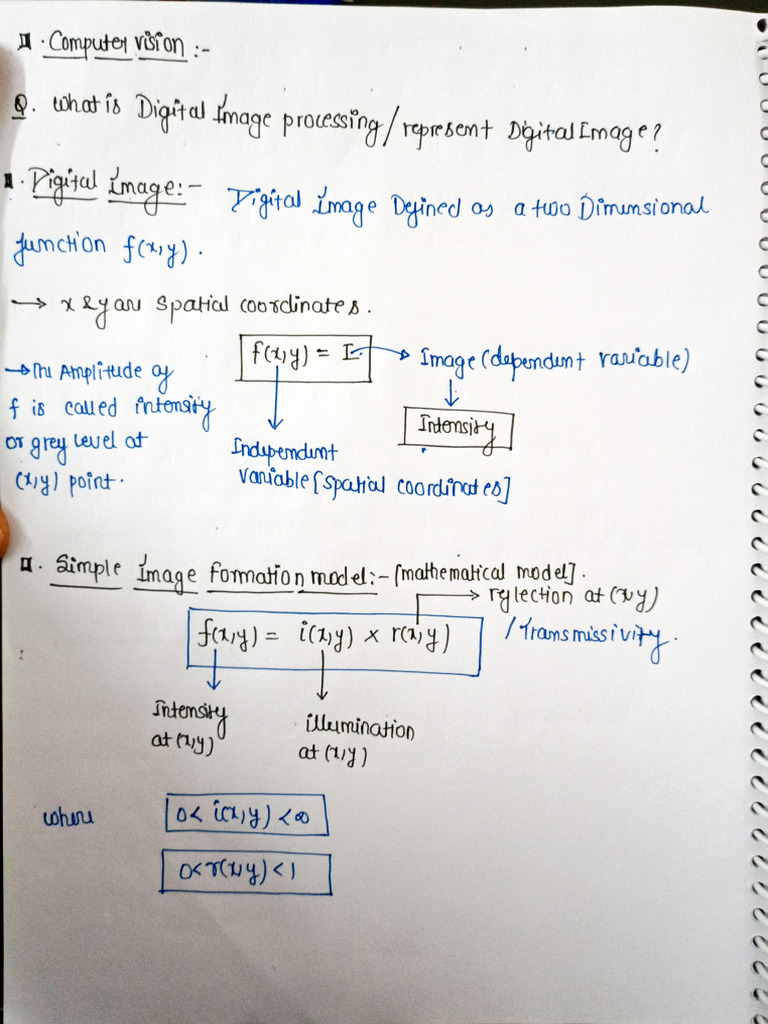 Computer vision :-
Q. What is Digital Image processing/represent Digital Image?
Digital Image:- Digital Image Defined as a two Dimensional
function f(x,y).
→ x & y are spatial coordinates.
f(x,y) = I → Image (dependent variable)
Intensity
→ The Amplitude of
f is called intensity
or grey level at
(x,y) point.
Independent
variable [spatial coordinates]
Simple Image formation model:- [mathematical model].
→ reflection at (x,y)
/Transmissivity.
f(x,y) = i(x,y) × r(x,y)
Intensity
at (x,y)
illumination
at (x,y)
where 0 < i(x,y) < ∞
0 < r(x,y) < 1